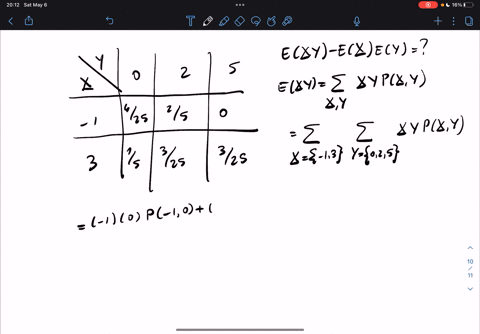 20:12 Sat May 6
16%
E(XY)-E(X)E(Y)=?
Y
X
0 2 5
-1 4/25 2/5 0
3 1/5 3/25 3/25
E(XY)= Σ XY P(X,Y)
X,Y
= Σ Σ XY P(X,Y)
X={-1,3} Y={0,2,5}
= (-1)(0) P(-1,0)+(
10
11